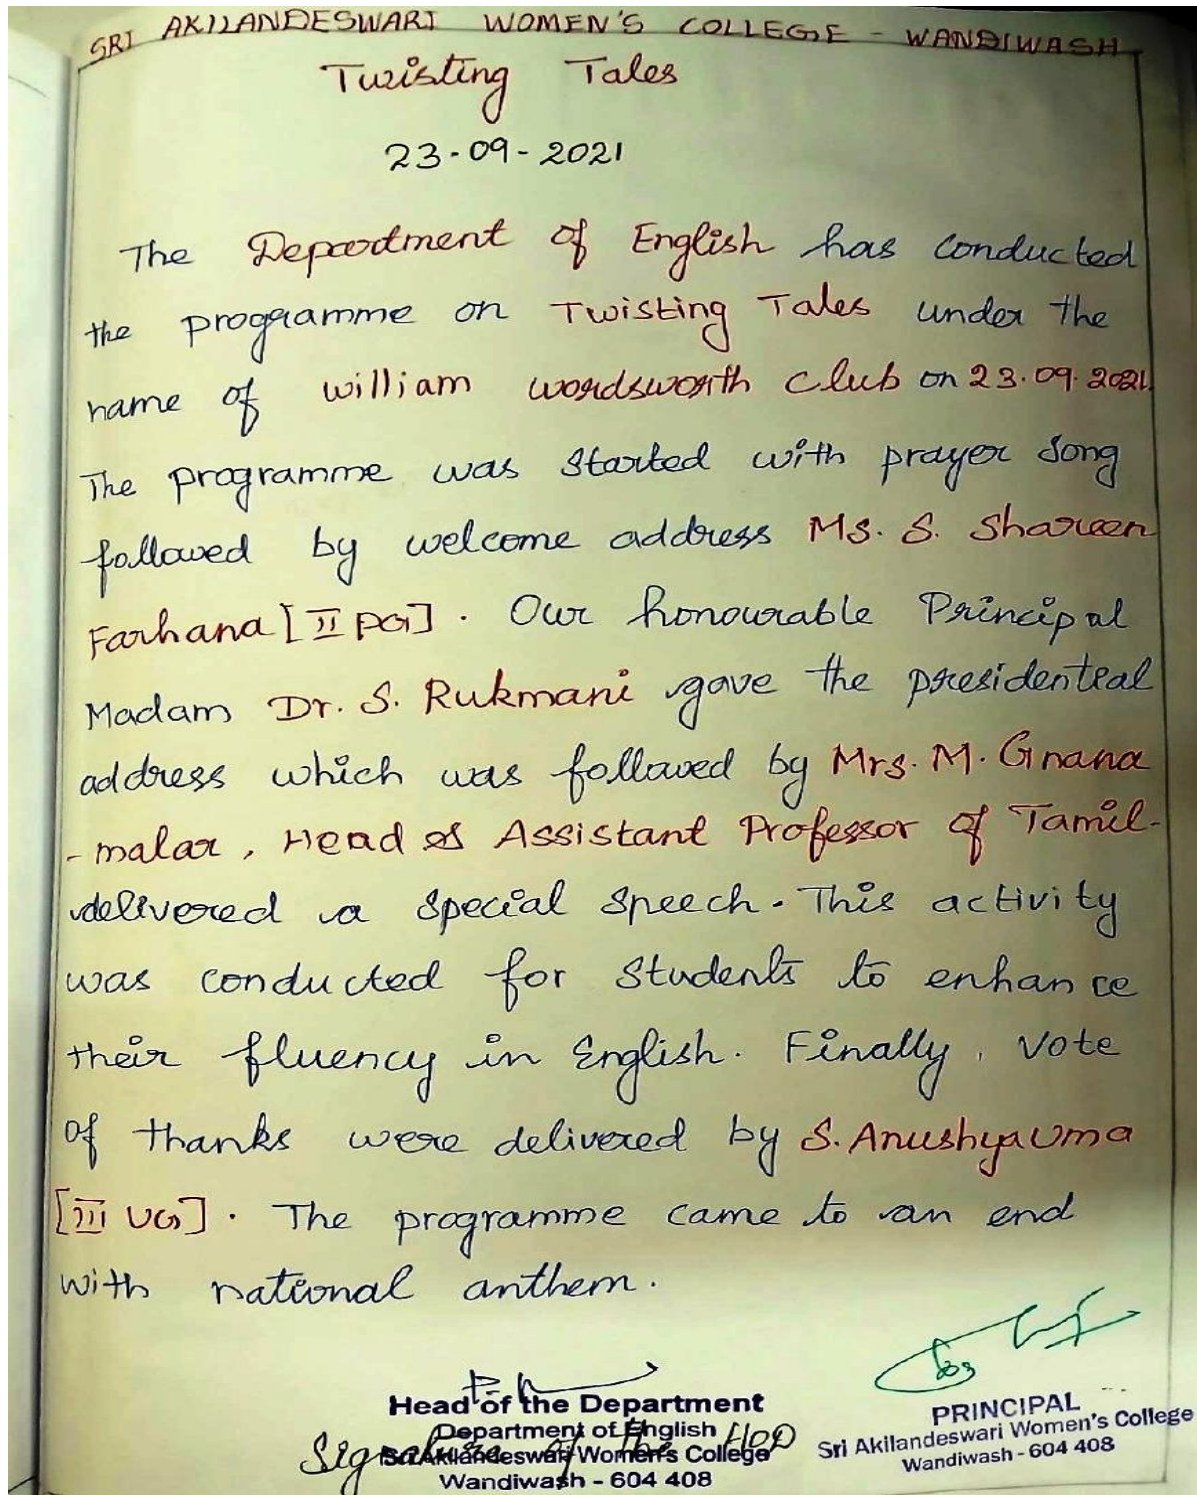 SRI AKILANDESWARI WOMEN'S COLLEGE - WANDIWASH
Twisting Tales
23-09-2021
The Department of English has conducted
the programme on Twisting Tales under the
name of William Wordsworth Club on 23.09.2021.
The programme was started with prayer song
followed by welcome address Ms. S. Shareen
Farhana [II PG]. Our honourable Principal
Madam Dr. S. Rukmani gave the presidential
address which was followed by Mrs. M. Gnana
- malar, Head & Assistant Professor of Tamil-
delivered a special speech. This activity
was conducted for students to enhance
their fluency in English. Finally, vote
of thanks were delivered by S. Anushya Uma
[III UG]. The programme came to an end
with national anthem.
Head of the Department
Department of English
Sri Akilandeswari Women's College
Wandiwash - 604 408
Signature of the HOD
PRINCIPAL
Sri Akilandeswari Women's College
Wandiwash - 604 408